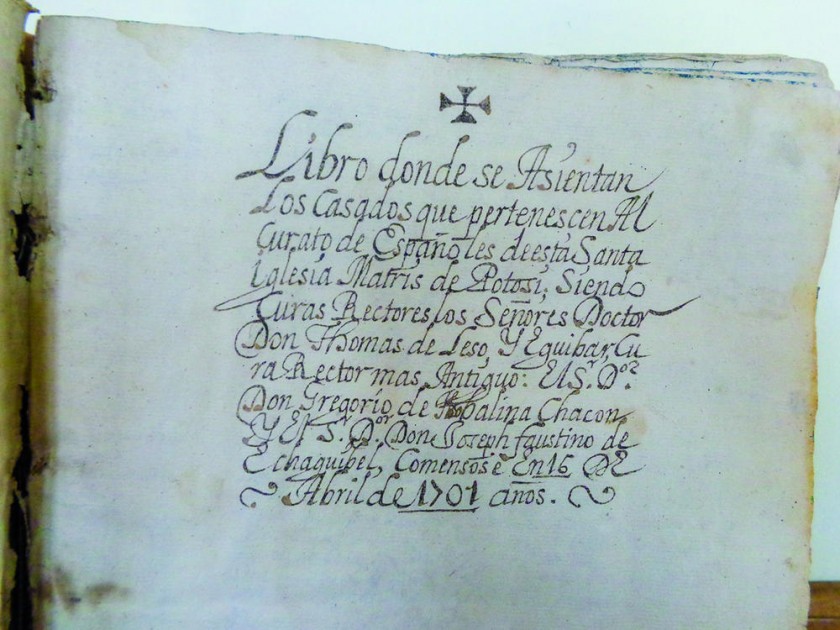 Libro donde se Asientan
Los Casados que pertenescen Al
Curato de Españoles de esta Santa
Iglesia Matris de Potosi; Siendo
Curas Rectores los Señores Doctor
Don Thomas de Leso, Y Eguibar, Cu
ra Rector mas Antiguo: El Sr. Dor.
Don Gregorio de Molina Chacon
Y El Sr. Dor. Don Joseph faustino de
Echaquibel, Comensose En 16 DE
Abril de 1701 años.